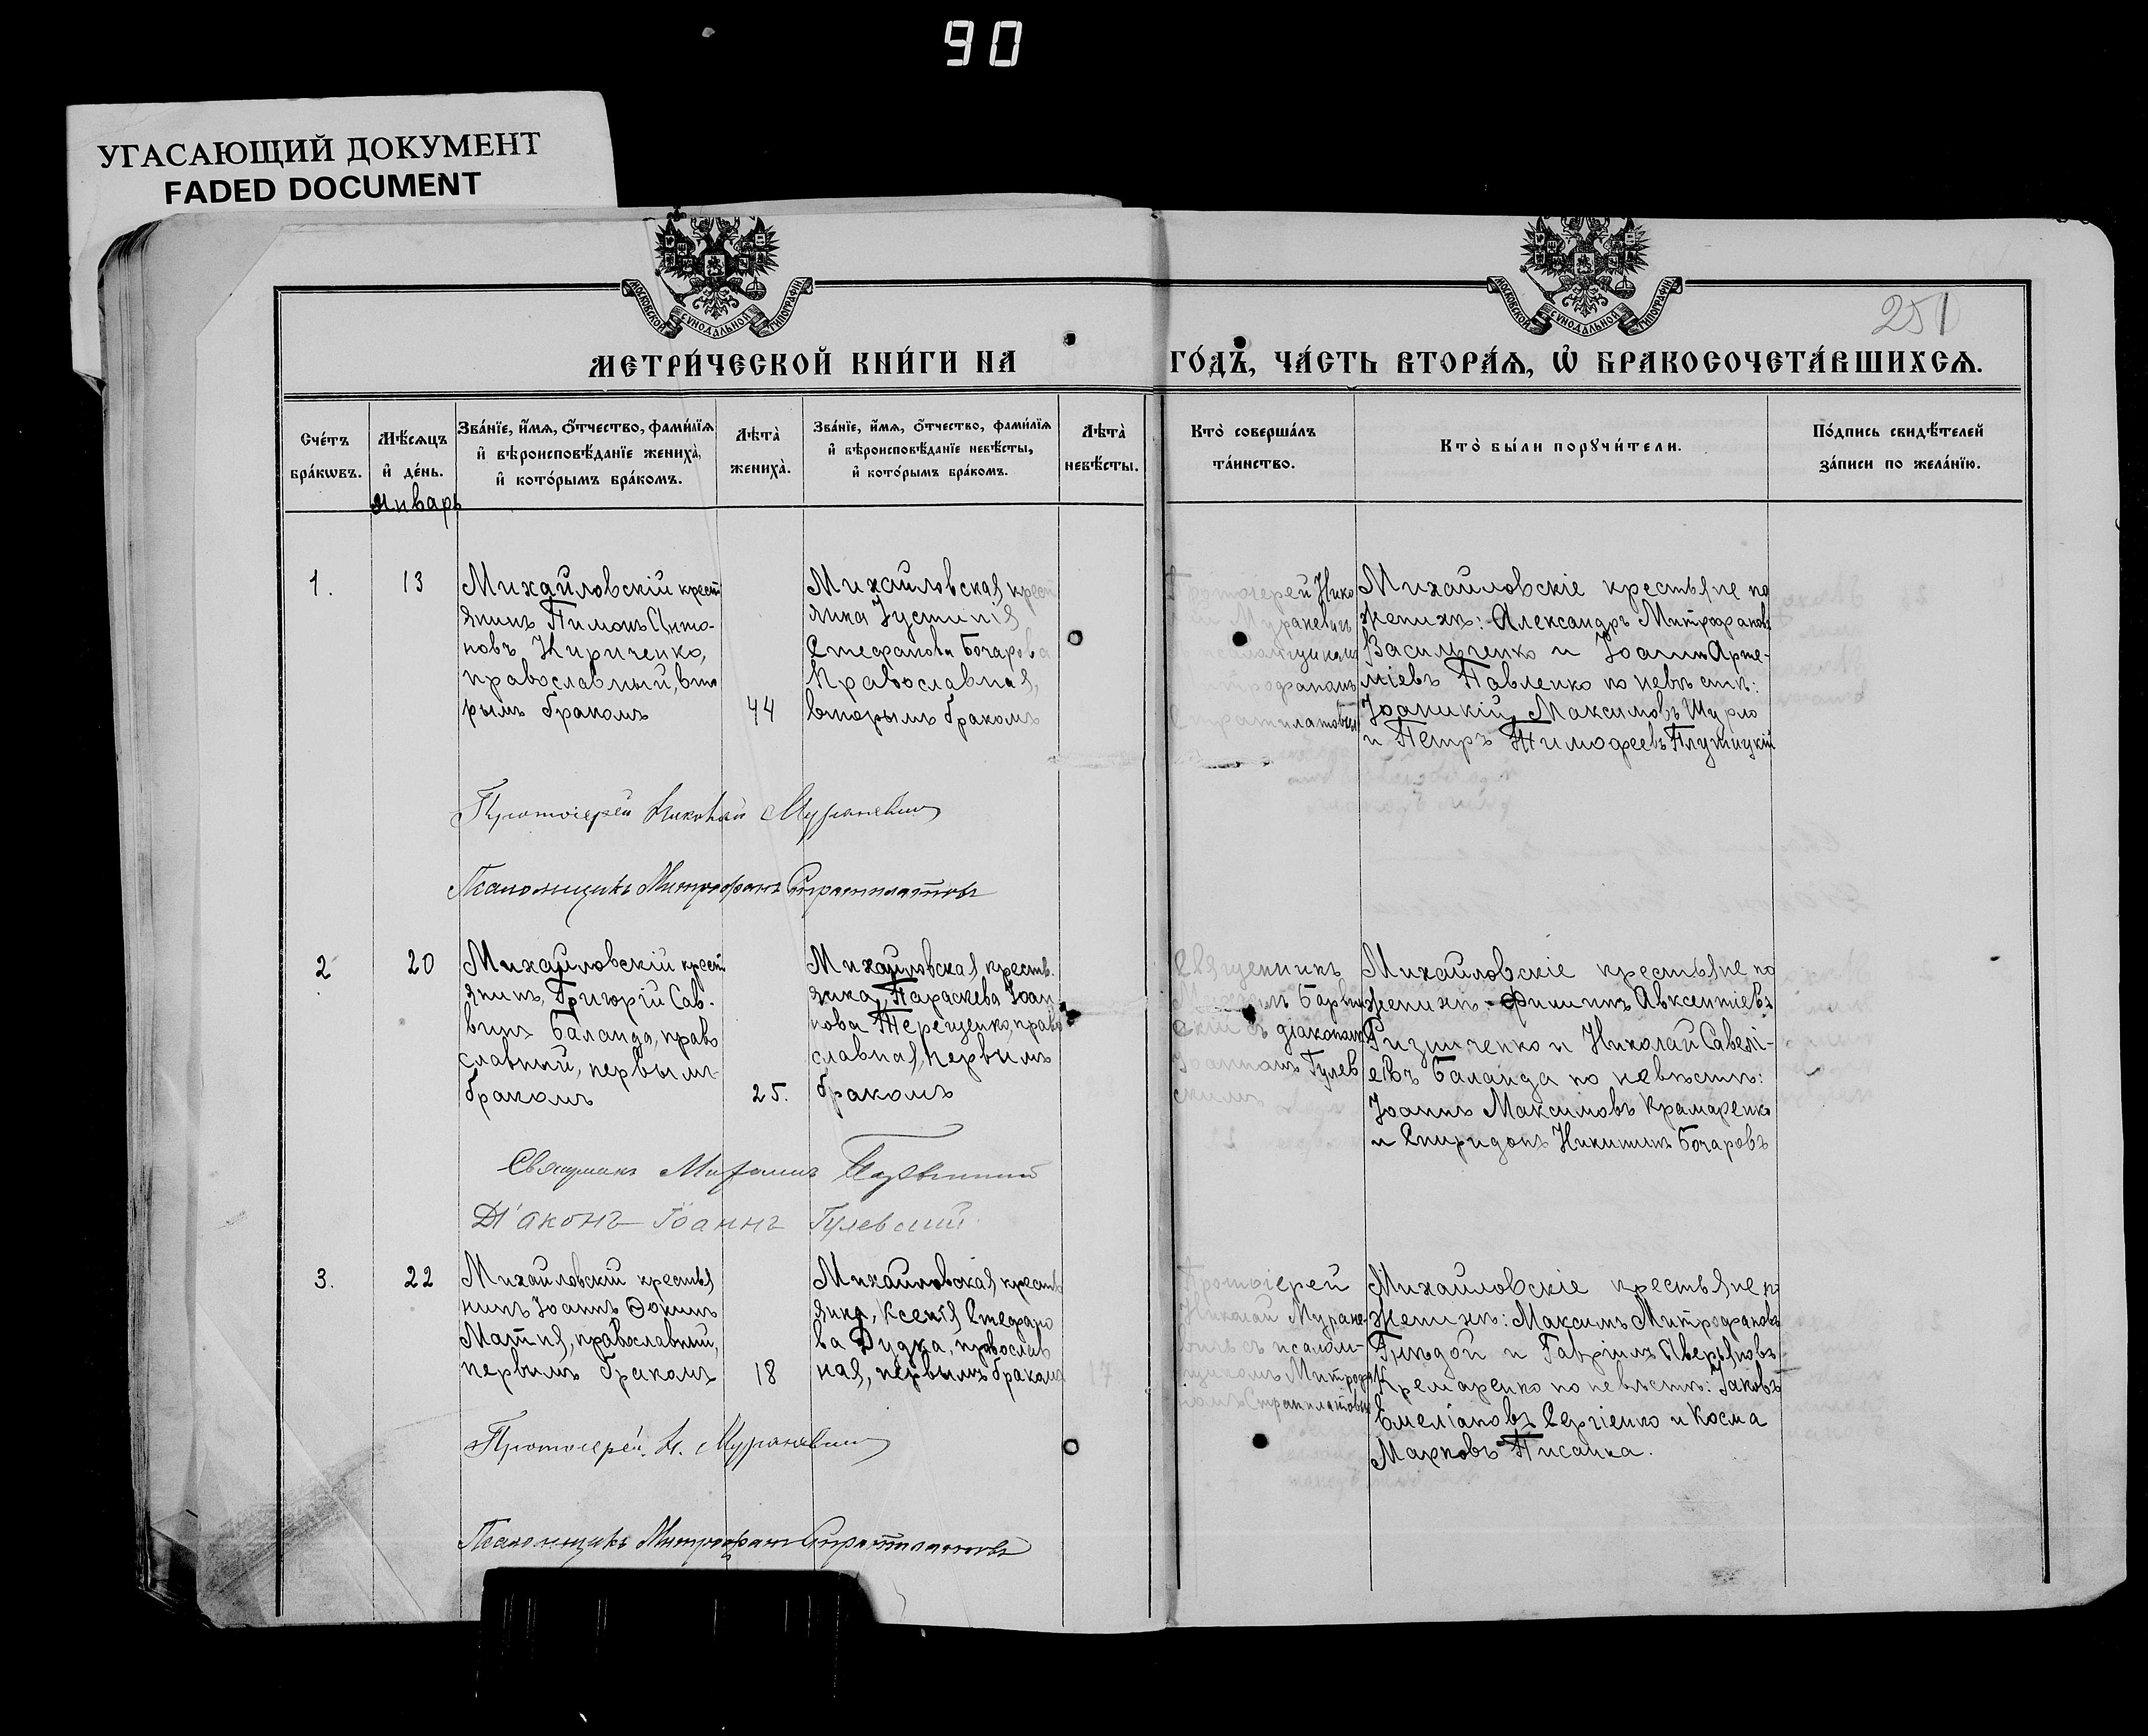 90
УГАСАЮЩИЙ ДОКУМЕНТ
FADED DOCUMENT
МОСКОВСКОЙ СѴНОДАЛЬНОЙ ТИПОГРАФІИ
МОСКОВСКОЙ СѴНОДАЛЬНОЙ ТИПОГРАФІИ
251
МЕТРИ́ЧЕСКОЙ КНИ́ГИ НА ГО́ДЪ, ЧА́СТЬ ВТОРА́Ѧ, Ѡ҆ БРАКОСОЧЕТА́ВШИХСѦ.
Сче́тъ бра́кѡвъ.
Мѣ́сяцъ и҆ де́нь.
Зва́нїе, и҆́мѧ, ѻ҆́тчество, фами́лїѧ
и҆ вѣроисповѣ́данїе жениха̀,
и҆ кото́рымъ бра́комъ.
Лѣта̀ жениха̀.
Зва́нїе, и҆́мѧ, ѻ҆́тчество, фами́лїѧ
и҆ вѣроисповѣ́данїе невѣ́сты,
и҆ кото́рымъ бра́комъ.
Лѣта̀ невѣ́сты.
Кто̀ соверша́лъ
та́инство.
Кто̀ бы́ли порꙋчи́тели.
По́дпись свидѣ́телей
за́писи по жела́нїю.
Январь
1.
13
Михайловскій крест
янинъ Пимонъ Анто-
новъ Кириченко,
православный, вто
рымъ бракомъ
44
Михайловская крест
янка Іустинія
Стефанова Бочарова
Православная,
вторымъ бракомъ
Протоіерей Нико
лай Мураневичъ
псаломщикомъ
Митрофаномъ
Стратилатовы
Михайловскіе крестьяне по
женихѣ: Александръ Митрофановъ
Васильченко и Іоаннъ Арте-
міевъ Павленко по невѣстѣ:
Іоаникій Максимовъ Шурло
и Петръ Тимофеевъ Плутицкій
Протоіерей Николай Мураневичъ
Псаломщикъ Митрофанъ Стратилатовъ
2
20
Михайловскій крест
янинъ, Григорій Сав-
винъ Баланда, право
славный, первымъ
бракомъ
25.
Михайловская кресть.
янка, Параскева Іоан
нова Терещенко, право
славная, первымъ
бракомъ
Священникъ
Михаилъ Барвин
скій съ діакономъ
Іоанномъ Гулев
скимъ
Михайловскіе крестьяне по
женихѣ: Филиппъ Авксентіевъ
и Николай Савелі-
евъ Баланда по невѣстѣ:
Іоаннъ Максимовъ Крамаренко
и Спиридонъ Никитинъ Бочаровъ
Священникъ Михаилъ Барвинскій
Діаконъ Іоаннъ Гулевскій
3.
22
Михайловскій крестья
нинъ Іоаннъ Ѳокинъ
православный,
первымъ бракомъ
18
Михайловская кресть
янка, Ксенія Стефано
ва Дудка, православ
ная, первымъ бракомъ
17
Протоіерей
Николай Муране-
вичъ съ псалом-
щикомъ Митрофа
номъ Стратилатовы
Михайловскіе крестьяне по
женихѣ: Максимъ Митрофановъ
Гнѣдой и Гавріилъ Аверьяновъ
Кремаренко по невѣстѣ: Іаковъ
Емеліановъ Сергіенко и Косма
Марковъ Писанка.
Протоіерей Н. Мураневичъ
Псаломщикъ Митрофанъ Стратилатовъ